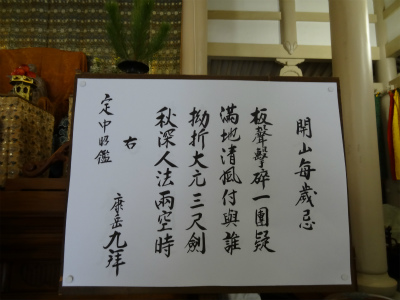 開山毎歳忌
板聲擊碎一團疑
滿地清風付與誰
拗折大元三尺劍
秋深人法兩空時
右
定中昭鑑
康岳九拝